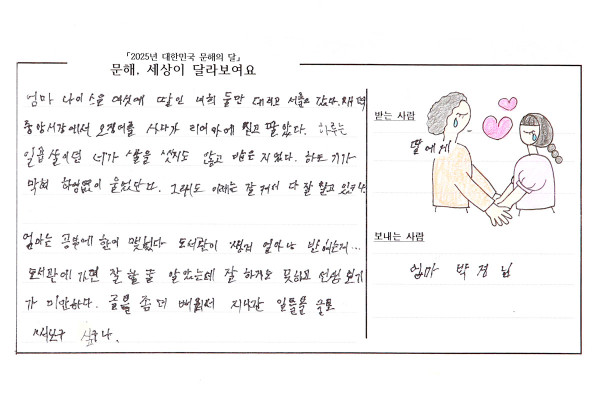 「2025년 대한민국 문해의 달」
문해, 세상이 달라보여요
엄마 나이 스물 여섯에 딸인 너희 둘만 데리고 서울로 갔다.
중앙시장에서 오징어를 사다가 리어카에 싣고 팔았다. 하루는
일곱살이던 네가 쌀을 씻지도 않고 밥을 지었다. 하도 기가
막혀 하염없이 울었단다. 그래도 이제는 잘 커서 다 잘 살고 있구나
엄마는 공부에 한이 맺혔다 도서관이 생겨 얼마나 반가운지...
도서관에 가면 잘 할 줄 알았는데 잘 하지도 못하고 선생 보기
가 미안하다. 글을 좀 더 배워서 지나간 일들을 글로
써보고 싶구나.
받는 사람
딸에게
보내는 사람
엄마 박경님